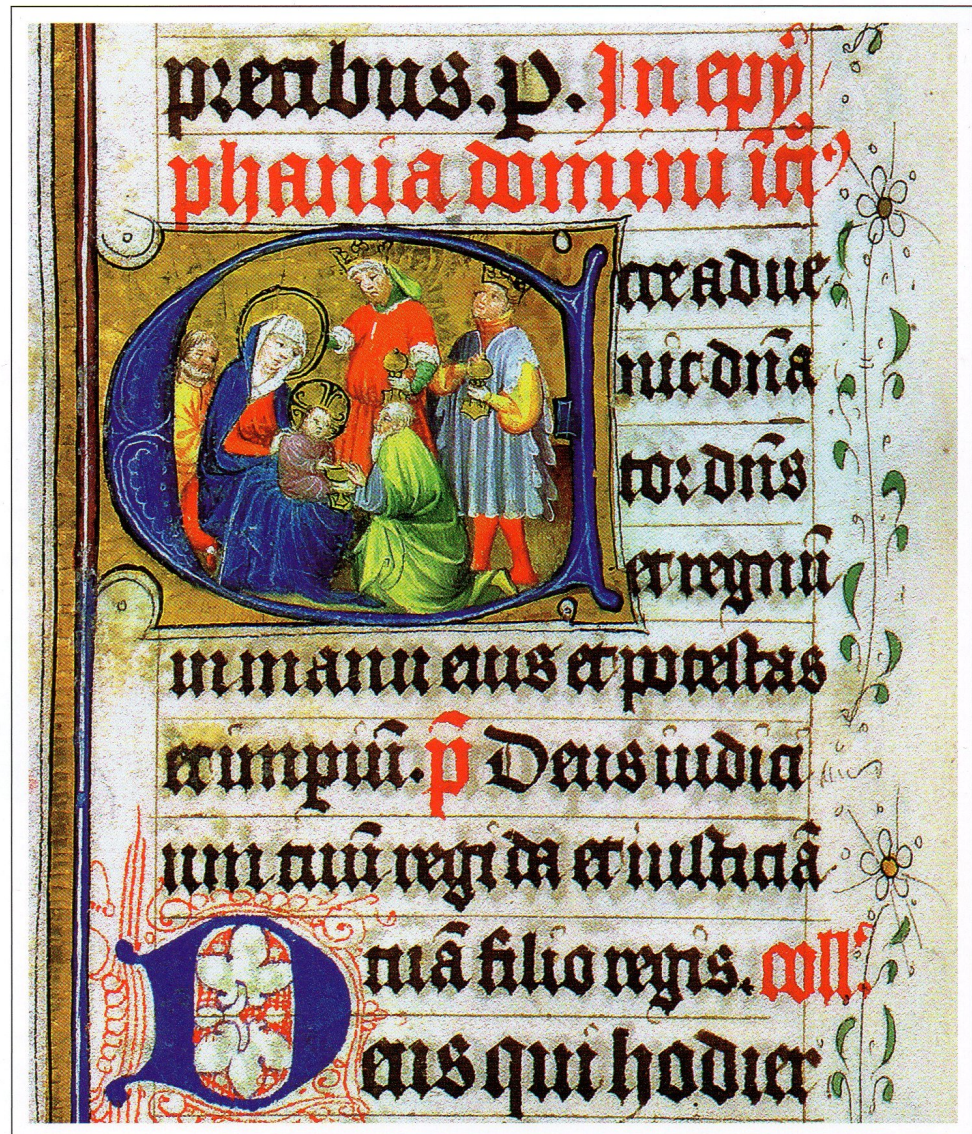 precibus. P. In epy
phania domini
E cce adue
nit dn̄a
tor dn̄s
et regnū
in manu eius et potestas
et impiū. p̄ Deus iudici
um tuū regi da et iusticiā
tuā filio regis. coll.
Deus qui hodier